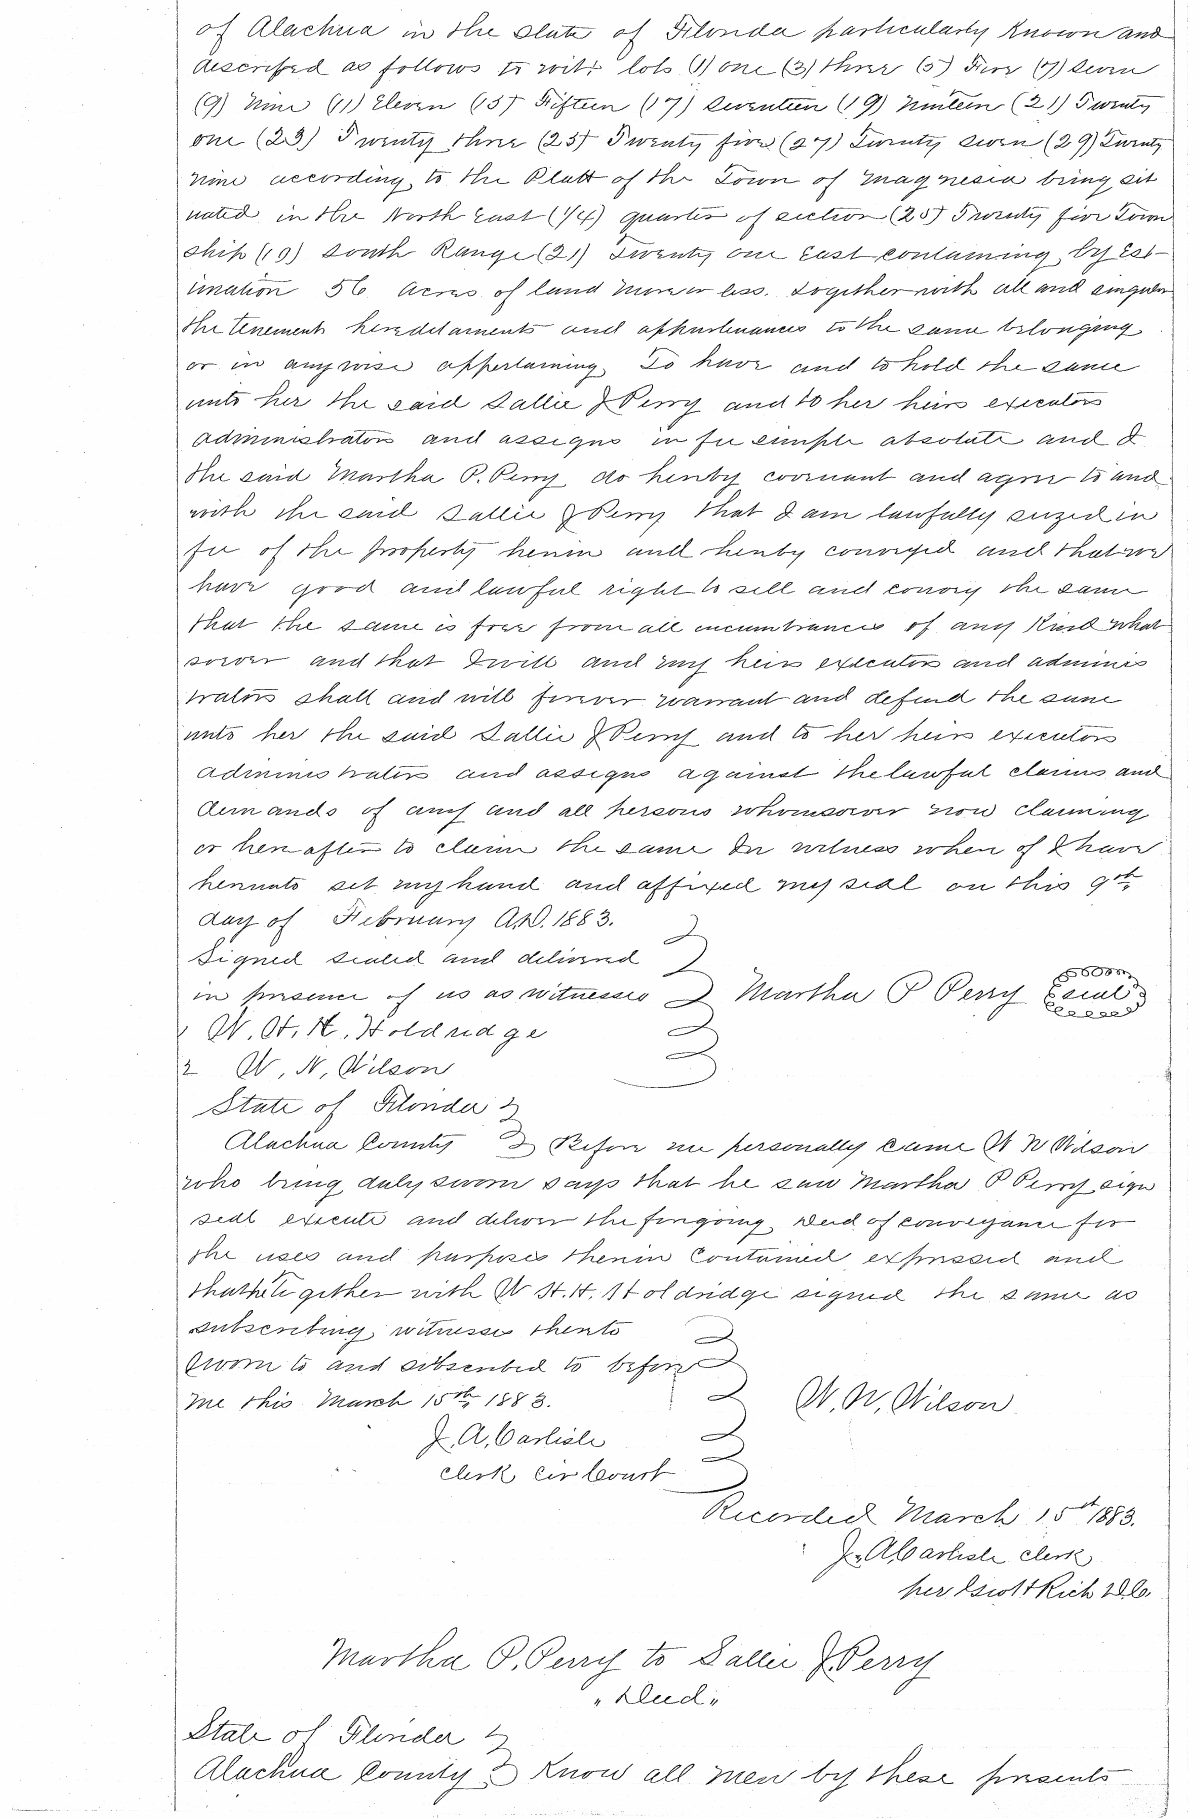 of Alachua in the State of Florida particularly Known and
described as follows to wit: lots (1) one (3) three (5) Five (7) Seven
(9) Nine (11) Eleven (15) Fifteen (17) Seventeen (19) Nineteen (21) Twenty
one (23) Twenty three (25) Twenty five (27) Twenty seven (29) Twenty
nine according to the Platt of the Town of Magnesia being sit
uated in the North East (1/4) quarter of section (25) Twenty five Town
ship (10) South Range (21) Twenty one East containing by Est-
imation 56 Acres of land more or less. Together with all and singular
the tenements hereditaments and appurtenances to the same belonging
or in anywise appertaining, To have and to hold the same
unto her the said Sallie J Perry and to her heirs executors
administrators and assigns in fee simple absolute and I
the said Martha P. Perry do hereby covenant and agree to and
with the said Sallie J Perry that I am lawfully seized in
fee of the property herein and hereby conveyed and that we
have good and lawful right to sell and convey the same
that the same is free from all incumbrances of any Kind what
soever and that I will and my heirs executors and adminis
trators shall and will forever warrant and defend the same
unto her the said Sallie J Perry and to her heirs executors
administrators and assigns against the lawful claims and
demands of any and all persons whomsoever now claiming
or hereafter to claim the same In witness where of I have
hereunto set my hand and affixed my seal on this 9th
day of February A.D. 1883.
Signed sealed and delivered
in presence of us as witnesses Martha P Perry seal
1 W. H. H. Holdridge
2 W. N. Wilson
State of Florida
Alachua County Before me personally came W N Wilson
who being duly sworn says that he saw Martha P Perry sign
seal execute and deliver the foregoing Deed of conveyance for
the uses and purposes therein Contained expressed and
that he together with W H. H. Holdridge signed the same as
subscribing witnesses thereto
Sworn to and subscribed to before
me this March 15th 1883. W. N. Wilson
J. A. Carlisle
clerk Cir Court
Recorded March 15th 1883.
J. A. Carlisle clerk
per Scott Rich D.C.
Martha P. Perry to Sallie J. Perry
"Deed"
State of Florida
Alachua County Know all men by these presents